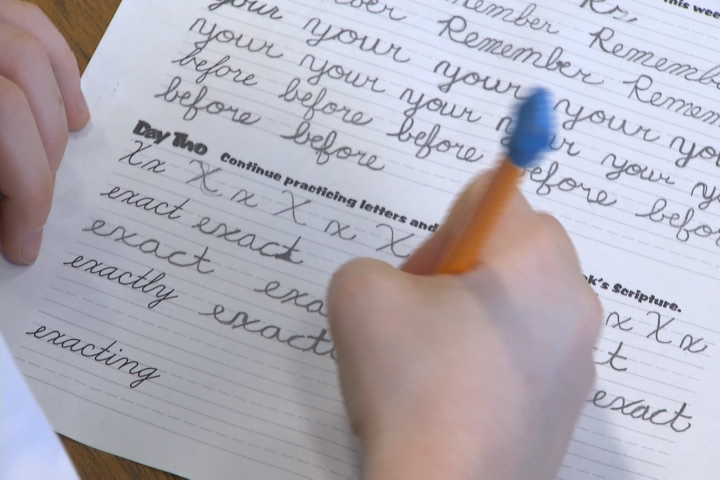 this wee
ember Remember
Remember Remember Remem
your your your your your yo
your your your your your y
before before before before befo
before before
Day Two Continue practicing letters and k's Scripture.
Xx X x X x X x X x
exact exact t
exact exa exact
exactly exact
exacting